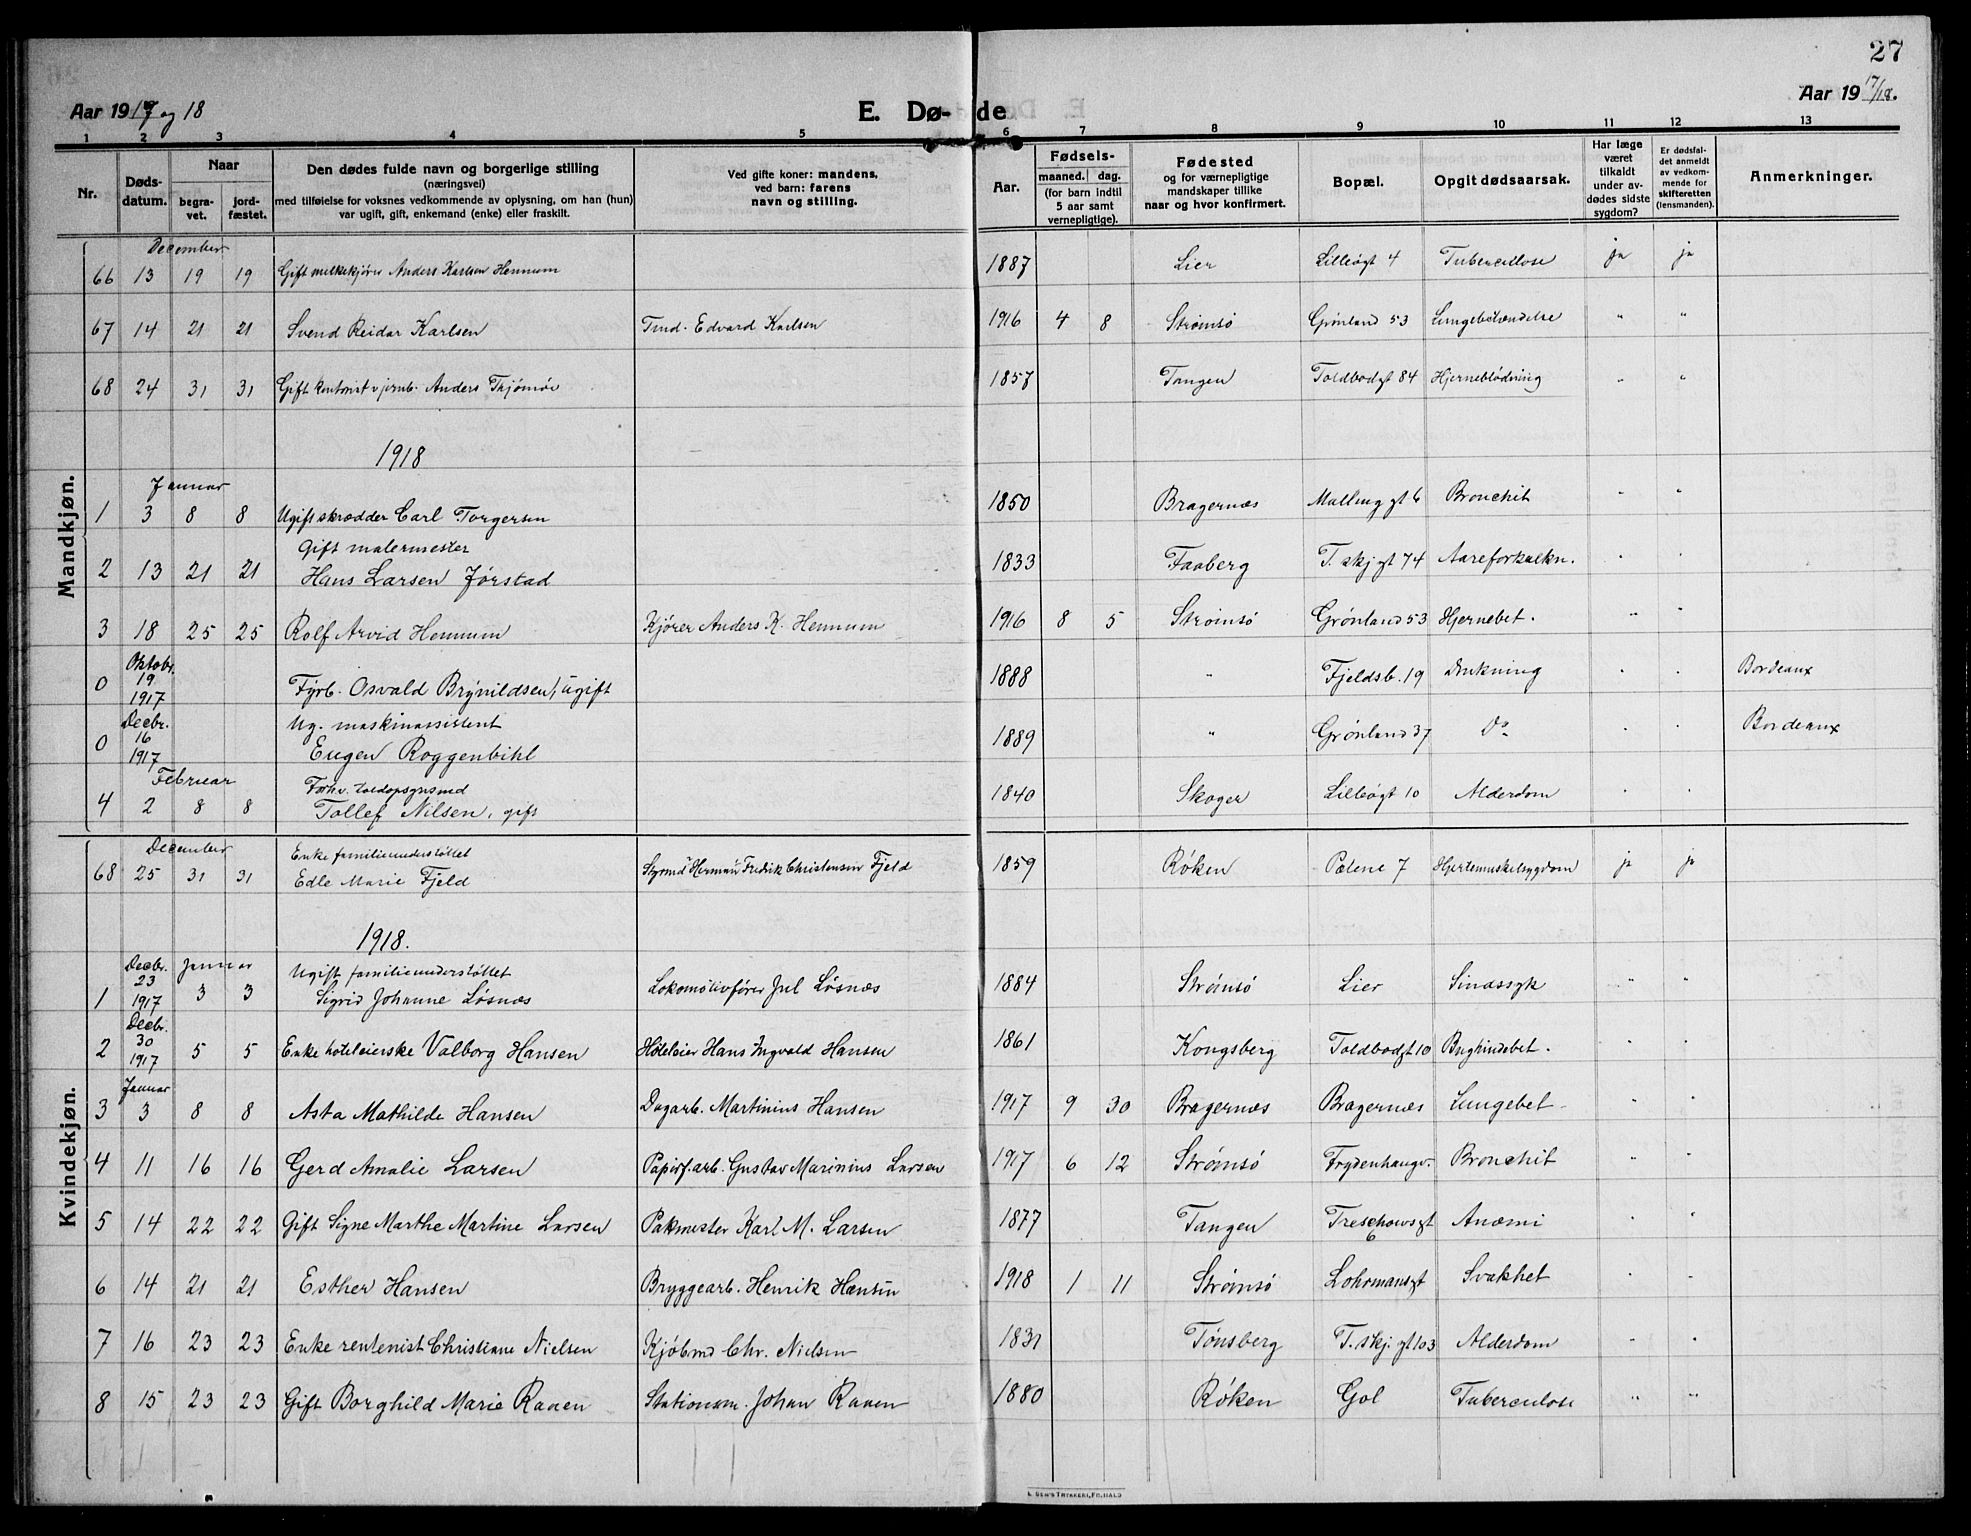 27
Aar 1917 og 18
E. Dø-de
Aar 1917/18.
1 2 3 4 5 6 7 8 9 10 11 12 13
Nr.
Dødsdatum.
Naar
begravet.
jordfæstet.
Den dødes fulde navn og borgerlige stilling
(næringsvei)
med tilføielse for voksnes vedkommende av oplysning, om han (hun)
var ugift, gift, enkemand (enke) eller fraskilt.
Ved gifte koner: mandens,
ved barn: farens
navn og stilling.
Aar.
Fødsels-
maaned. dag.
(for barn indtil
5 aar samt
vernepligtige).
Fødested
og for værnepligtige
mandskaper tillike
naar og hvor konfirmert.
Bopæl.
Opgit dødsaarsak.
Har læge
været
tilkaldt
under av-
dødes sidste
sygdom?
Er dødsfal-
det anmeldt
av vedkom-
mende for
skifteretten
(lensmanden).
Anmerkninger.
Mandkjøn.
December
66 13 19 19 Gift melkekjører Anders Karlsen Hennum 1887 Lier Lilleøgt 4 Tuberculose ja ja
67 14 21 21 Svend Reidar Karlsen Tmd. Edvard Karlsen 1916 4 8 Strømsø Grønland 53 Lungebetændelse " "
68 24 31 31 Gift kontorist v jernb. Anders Thjømøe 1857 Tangen Toldbodgt 84 Hjerneblødning " "
1918
Januar
1 3 8 8 Ugift skrædder Carl Torgersen 1850 Bragernæs Malling gt 6 Bronchit " "
Gift malermester
2 13 21 21 Hans Larsen Jørstad 1833 Faaberg T. skj gt 74 Aareforkalkn. " "
3 18 25 25 Rolf Arvid Hennum Kjører Anders K. Hennum 1916 8 5 Strømsø Grønland 53 Hjernebet. " "
Oktobr.
0 19 1917 Fyrb. Osvald Brynildsen, ugift 1888 " Fjeldsb. 19 Drukning " " Bordeaux
Decbr. Ug. maskinassistent
0 16 1917 Eugen Roggenbihl 1889 " Grønland 37 Do " " Bordeaux
Februar Forhv. toldopsynsmd
4 2 8 8 Tollef Nilsen, gift 1840 Skoger Lilleøgt 10 Alderdom " "
Kvindekjøn.
December Enke familieunderstøttet
68 25 31 31 Edle Marie Fjeld Herman Fredrik Christensen Fjeld 1859 Røken Pælene 7 Hjertemuskelsygdom ja ja
1918.
Decbr. Januar Ugift familieunderstøttet
1 23 1917 3 3 Sigrid Johanne Løsnæs Lokomotivfører Jul Løsnæs 1884 Strømsø Lier Sindssyk " "
Decbr.
2 30 1917 5 5 Enke hoteleierske Valborg Hansen Hoteleier Hans Ingvald Hansen 1861 Kongsberg Toldbodgt 10 Bughindebet. " "
Januar
3 3 8 8 Asta Mathilde Hansen Dagarb. Martinius Hansen 1917 9 30 Bragernæs Bragernæs Lungebet. " "
4 11 16 16 Gerd Amalie Larsen Papirf.arb. Gustav Marinius Larsen 1917 6 12 Strømsø Frydenhaugv. Bronchit " "
5 14 22 22 Gift Signe Marthe Martine Larsen Pakmester Karl M. Larsen 1877 Tangen Treschowsgt 6 Anæmi " "
6 14 21 21 Esther Hansen Bryggearb. Henrik Hansen 1918 1 11 Strømsø Lohrmansgt Svakhet " "
7 16 23 23 Enke rentenist Christiane Nielsen Kjøbmd Chr. Nielsen 1831 Tønsberg T. skj. gt 103 Alderdom " "
8 15 23 23 Gift Borghild Marie Raaen Stationsm. Johan Raaen 1880 Røken Gol Tuberculose " "